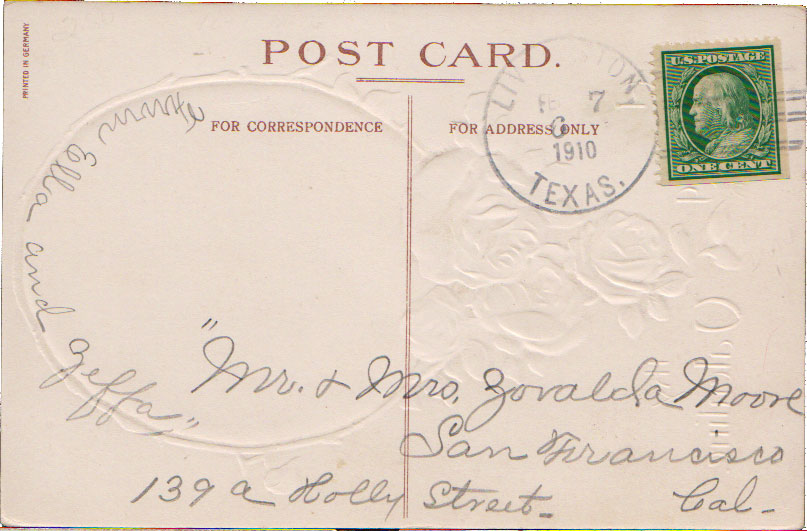 PRINTED IN GERMANY
POST CARD.
FOR CORRESPONDENCE
FOR ADDRESS ONLY
LIVINGSTON
7
1910
TEXAS.
U.S. POSTAGE
ONE CENT
From Ella and Zeffa"
"Mr. & Mrs. Zovalda Moore
San Francisco
139 a Holly Street - Cal -